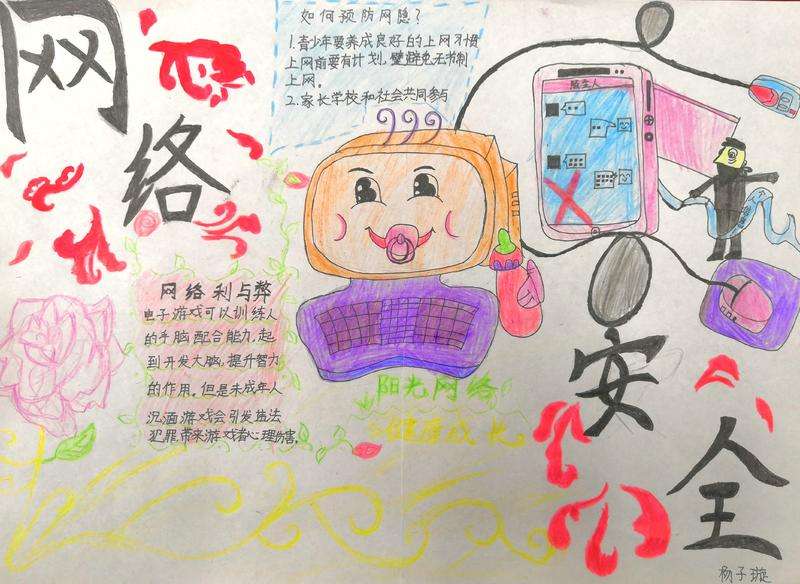 网络
如何预防网隐？
1.青少年要养成良好的上网习惯
上网前要有计划,壁避免无节制
上网。
2.家长学校和社会共同参与
陌生人
网络利与弊
电子游戏可以训练人
的手脑配合能力,起
到开发大脑,提升智力
的作用。但是未成年人
沉洒游戏会引发违法
犯罪,带来游戏者心理伤害。
阳光网络
健康成长
安全
杨子璇